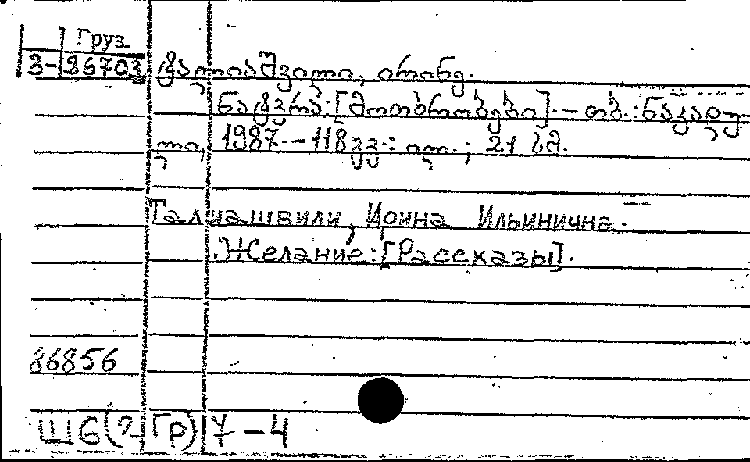 Груз
3-86703 ტალიაშვილი, ირინე.
ნატვრა: [მოთხრობები]. - თბ.: ნაკადუ
ლი, 1987. - 118გვ.: ილ.; 21 სმ.
Талиашвили, Ирина Ильинична.
Желание: [Рассказы].
86856
Ш6(2Гр)7-4